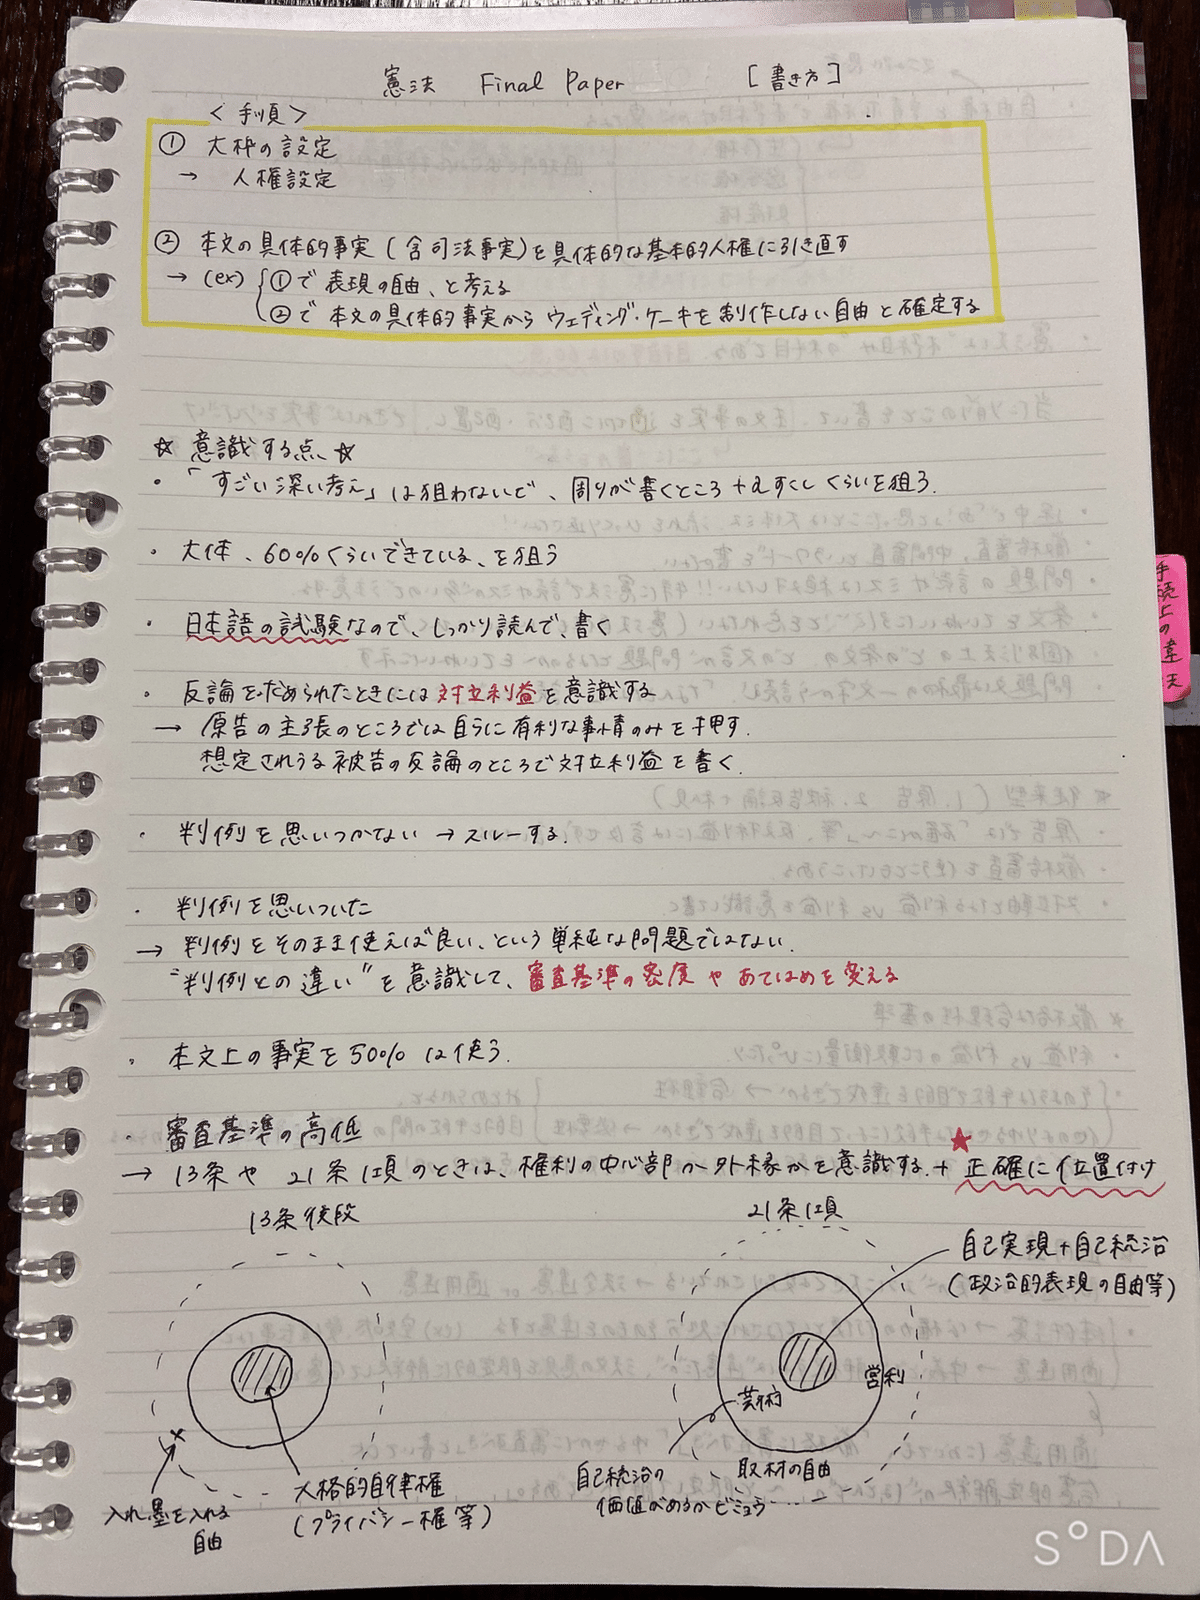 憲法 Final Paper [書き方]
<手順>
① 大枠の設定
→ 人権設定
② 本文の具体的事実(含司法事実)を具体的な基本的人権に引き直す
→ (ex) ①で表現の自由、と考える
②で本文の具体的事実からウェディング・ケーキを制作しない自由と確定する
☆ 意識する点、☆
・「すごい深い考え」は狙わないで、周りが書くところ+αすくしくらいを狙う.
・大体、60%くらいできている、を狙う
・日本語の試験なので、しっかり読んで、書く
・反論を求められたときには対立利益を意識する
→ 原告の主張のところでは自らに有利な事情のみを押す.
想定されうる被告の反論のところで対立利益を書く.
・判例を思いつかない → スルーする.
・判例を思いついた
→ 判例をそのまま使えば良い、という単純な問題ではない.
"判例との違い"を意識して、審査基準の密度やあてはめを変える
・本文上の事実を50%は使う.
・審査基準の高低
→ 13条や21条1項のときは、権利の中心部か外縁かを意識する.+ ★正確に位置付け
13条後段
21条1項
自己実現+自己統治
(政治的表現の自由等)
営利
芸術
取材の自由
自己統治の
価値があるかビミョう
人格的自律権
(プライバシー権等)
入れ墨を入れる
自由
手続上の違
SODA